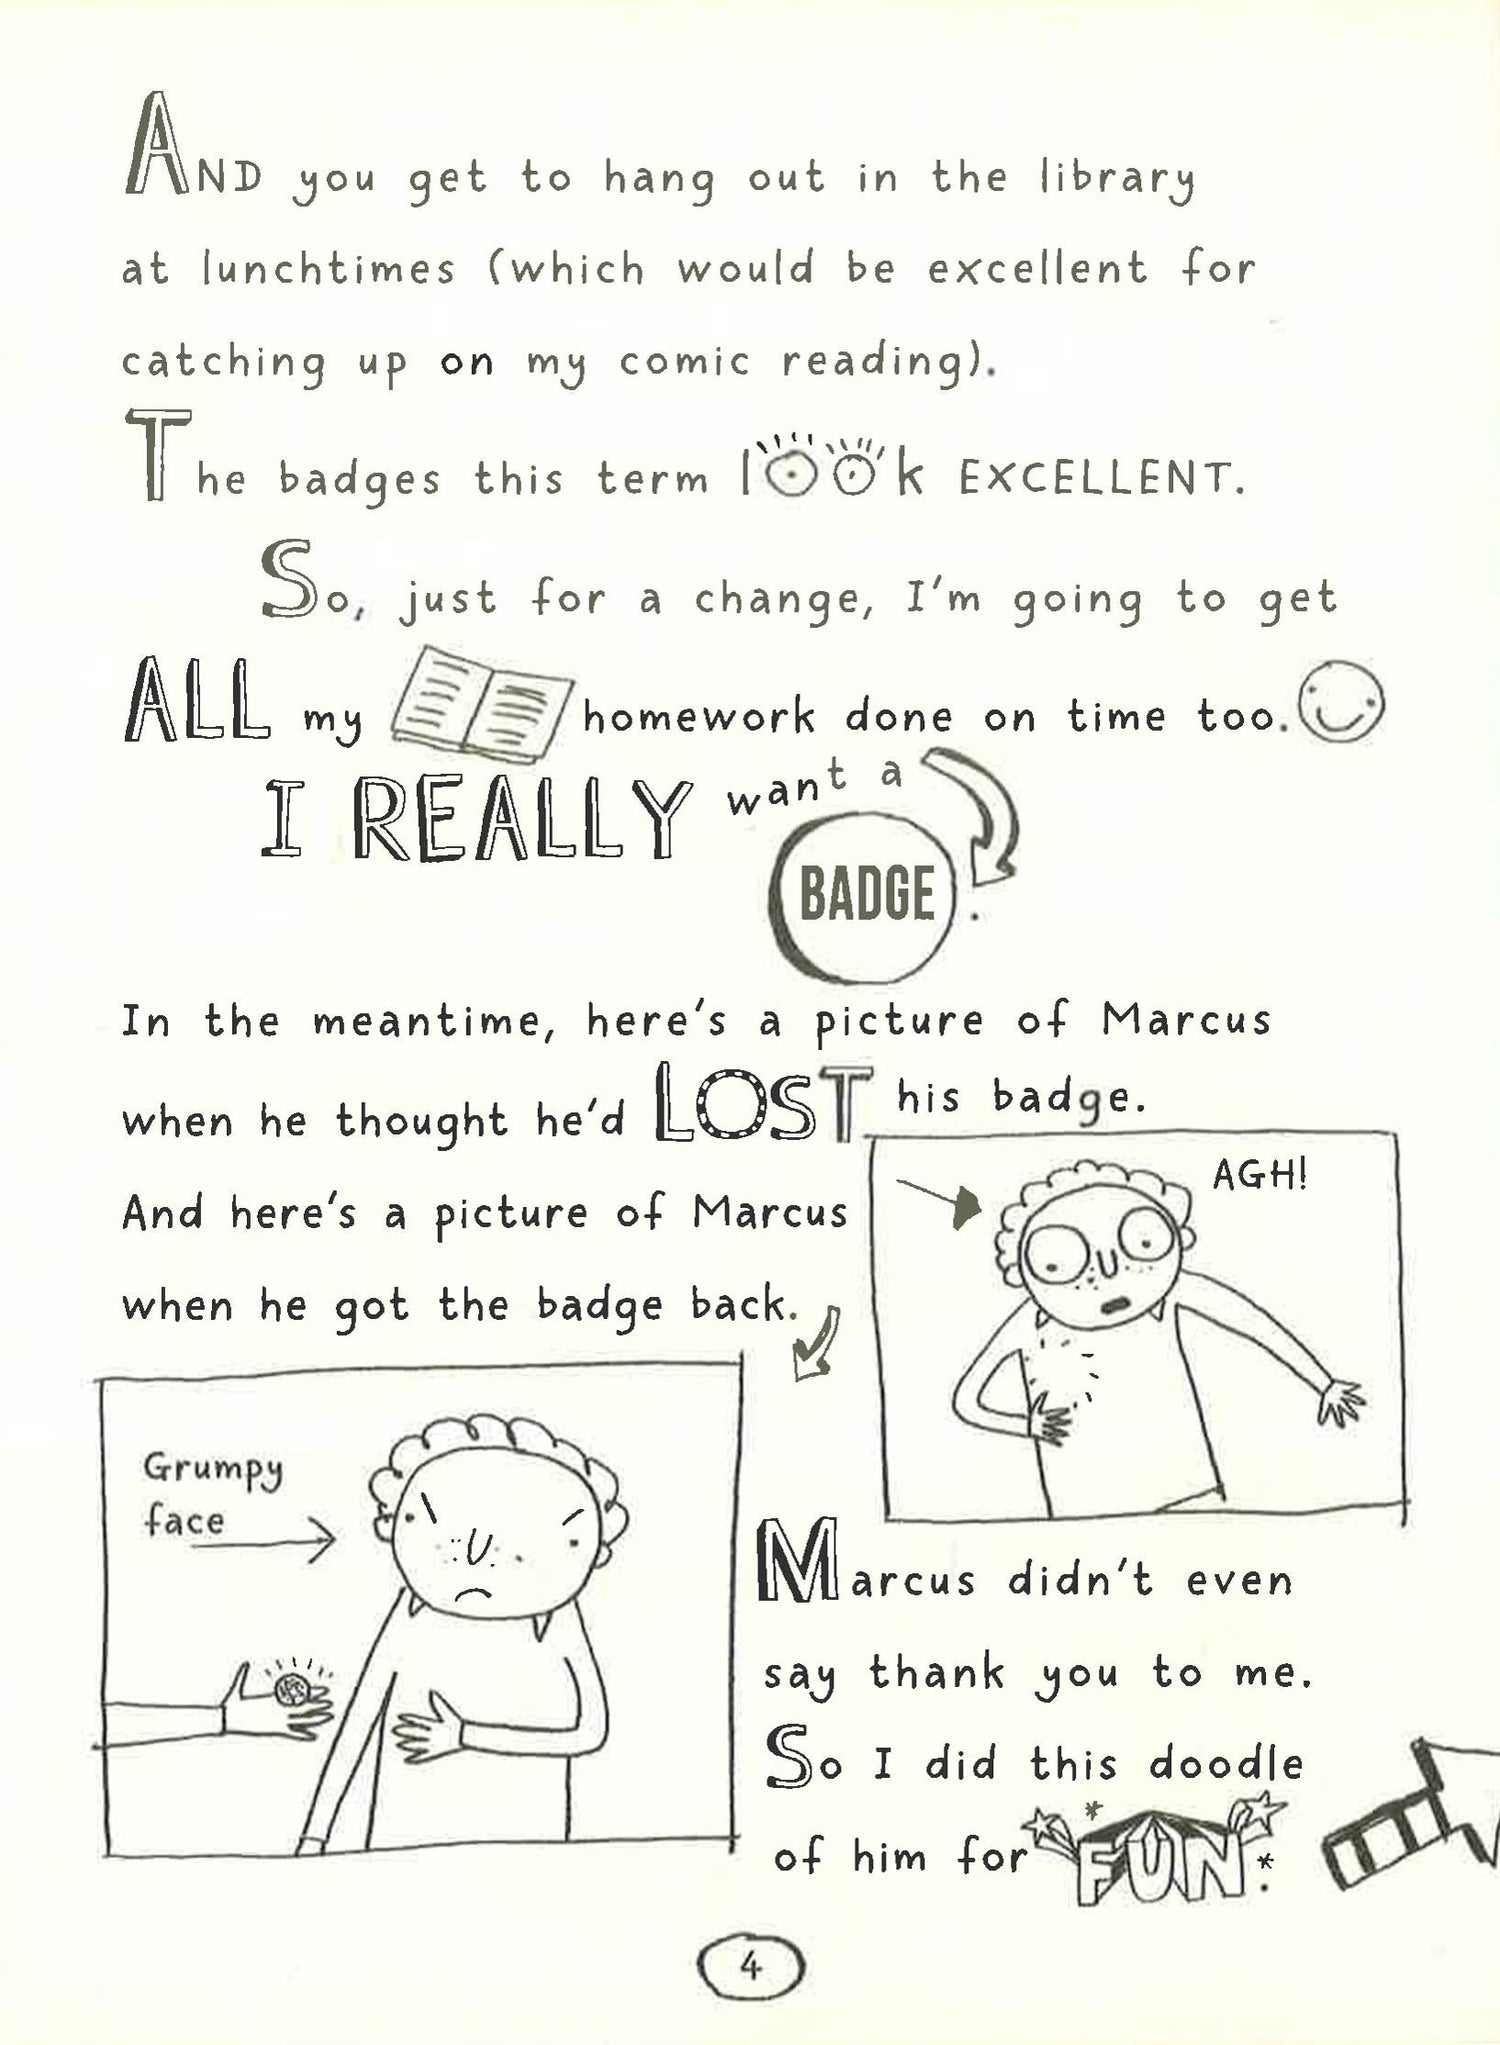 AND you get to hang out in the library
at lunchtimes (which would be excellent for
catching up on my comic reading).
The badges this term look EXCELLENT.
So, just for a change, I'm going to get
ALL my homework done on time too.
I REALLY want a
BADGE.
In the meantime, here's a picture of Marcus
when he thought he'd LOST his badge.
AGH!
And here's a picture of Marcus
when he got the badge back.
Grumpy
face
Marcus didn't even
say thank you to me.
So I did this doodle
of him for FUN.
4